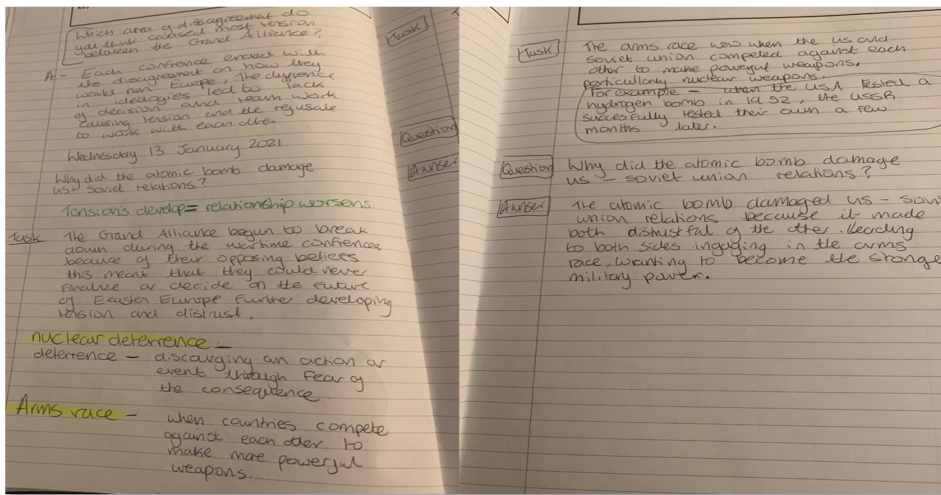 Which area of disagreement do
you think caused most tension
between the Grand Alliance?
A - Each confrence ended with
the disagreement on how they
would run Europe, The diffrence
in ideologies led to lack
of decision and team work
causing tension and the refusale
to work with each other
Wednesday 13 January 2021
Why did the atomic bomb damage
us - soviet relations?
Tensions develop = relationship worsens
Task
The Grand Alliance begun to break
down during the wartime confrences
because of their opposing believes
this meant that they could never
finalise or decide on the future
of Easter Europe further developing
tension and distrust.
nuclear deterrence -
deterrence - discouraging an action or
event through fear of
the consequence
Arms race - when countries compete
against each other to
make more powerful
weapons.
Task
Question
Answer
Task
The arms race was when the us and
soviet union competed against each
other to make powerful weapons,
particularly nuclear weapons.
For example - when the USA tested a
hydrogen bomb in 1952, the USSR
succesfully tested their own a few
months later.
Question
Why did the atomic bomb damage
us - soviet union relations?
Answer
The atomic bomb damaged us -
union relations because it made
both distrustful of the other. leading
to both sides ingaging in the arms
race, wanting to become the
military power.